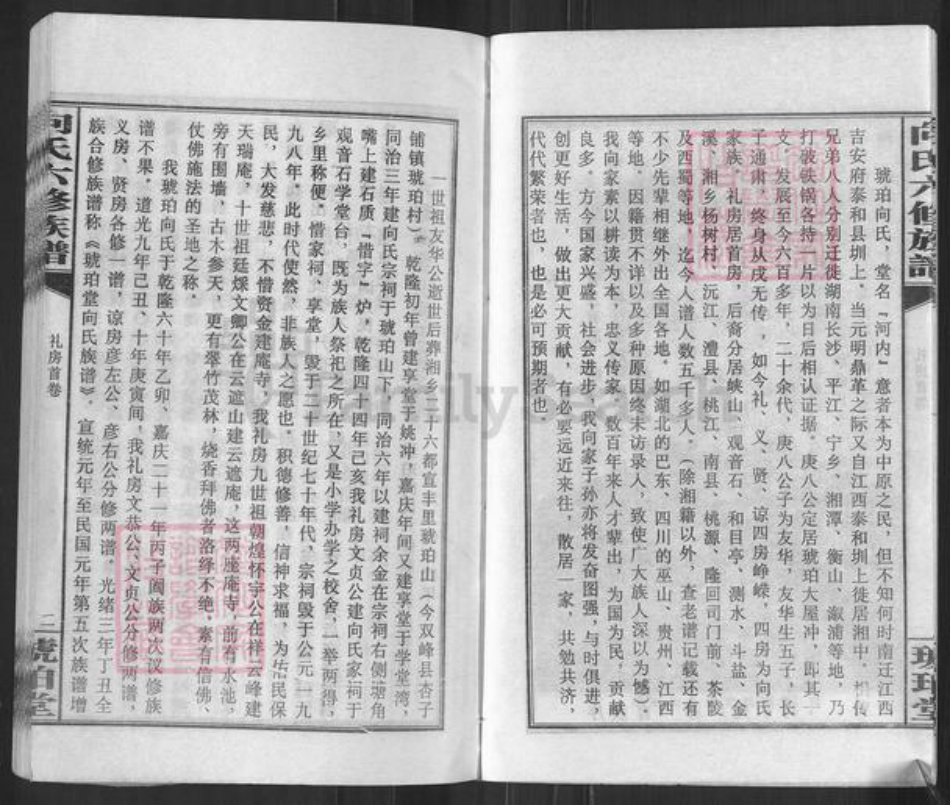 向氏六修族譜
琥珀堂
琥珀向氏，堂名『河内』意者本为中原之民，但不知何时南迁江西
吉安府泰和县圳上，当元明鼎革之际又自江西泰和圳上徙居湘中，相传
兄弟八人分别迁徙湖南长沙、平江、宁乡、湘潭、衡山、溆浦等地，乃
打破铁锅各持一片以为日后相认证据。庚八公定居琥珀大屋冲，即其一
支，发展至今六百多年，二十余代，庚八公子为友华，友华生五子，长
子通肃，终身从戎无传，如今礼、义、贤、谅四房峥嵘，四房为向氏
家族，礼房居首房，后裔分居峡山、观音石、和目亭、测水、斗盐、金
溪、湘乡杨树村、沅江、澧县、桃江、南县、桃源、隆回司门前、茶陵
及西蜀等地，迄今人谱人数五千多人。（除湘籍以外，查老谱记载还有
不少先辈相继外出全国各地。如湖北的巴东、四川的巫山、贵州、江西
等地，因籍贯不详以及多种原因终未访录入，致使广大族人深以为憾）。
我向家素以耕读为本，忠义传家，数百年来人才辈出，为国为民，贡献
良多。方今国家兴盛，社会进步，我向家子孙亦将发奋图强，与时俱进，
创更好生活，做出更大贡献，有必要远近来往，散居一家，共勉共济，
代代繁荣者也，也是必可预期者也
一世祖友华公逝世后葬湘乡二十六都宣丰里琥珀山（今双峰县杏子
铺镇琥珀村）。乾隆初年曾建享堂于姚冲，嘉庆年间又建享堂于学堂湾，
同治三年建向氏宗祠于琥珀山下，同治六年以建祠余金在宗祠右侧塘角
嘴上建石质『惜字』炉，乾隆四十四年己亥我礼房文贞公建向氏家祠于
观音石学堂台，既为族人祭祀之所在，又是小学办学之校舍，一举两得，
乡里称便。惜家祠、享堂，毁于二十世纪七十年代、宗祠毁于公元一九
九八年。此时代使然，非族人之愿也。积德修善，信神求福，为佑民保
民，大发慈悲，不惜资金建庵寺，我礼房九世祖朝煌怀宇公在祥云峰建
天瑞庵，十世祖廷煣文卿公在云遮山建云遮庵，这两座庵寺，前有水池，
旁有围墙，古木参天，更有翠竹茂林，烧香拜佛者洛绎不绝，素有信佛、
仗佛施法的圣地之称。
我琥珀向氏于乾隆六十年乙卯、嘉庆二十一年丙子阖族两次议修族
谱不果。道光九年己丑、十年庚寅间，我礼房文恭公、文贞公分修两谱，
义房、贤房各修一谱，谅房彦左公、彦右公分修两谱。光绪三年丁丑全
族合修族谱称《琥珀堂向氏族谱》。宣统元年至民国元年第五次族谱增
向氏六修族譜
礼房首卷
二
琥珀堂